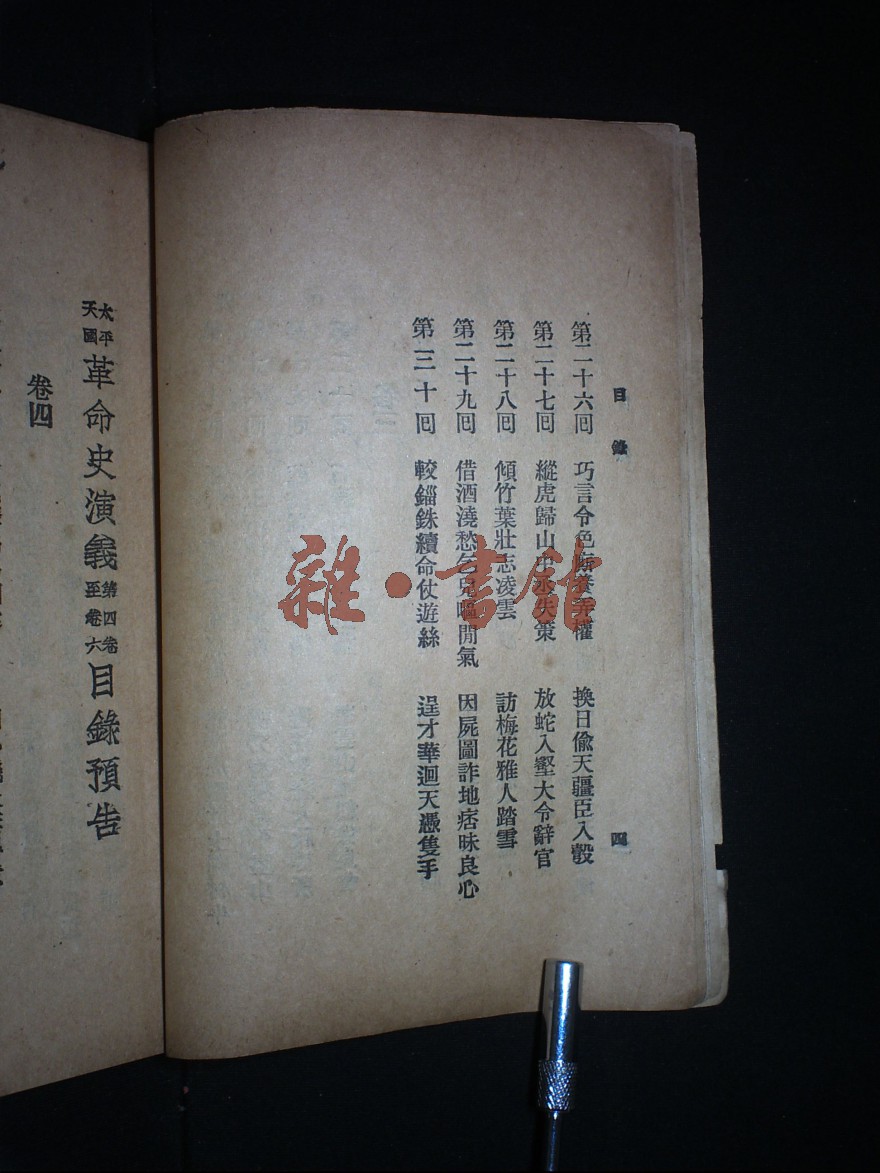 目錄 四
第二十六囘 巧言令色廝養弄權 換日偸天疆臣入彀
第二十七囘 縱虎歸山中丞失策 放蛇入壑大令辭官
第二十八囘 傾竹葉壯志凌雲 訪梅花雅人踏雪
第二十九囘 借酒澆愁乞兒嘔閒氣 因屍圖詐地痞昧良心
第三十囘 較錙銖續命仗遊絲 逞才華迴天憑隻手
太平天國革命史演義第四卷至卷六目錄預告
卷四
雜·書館